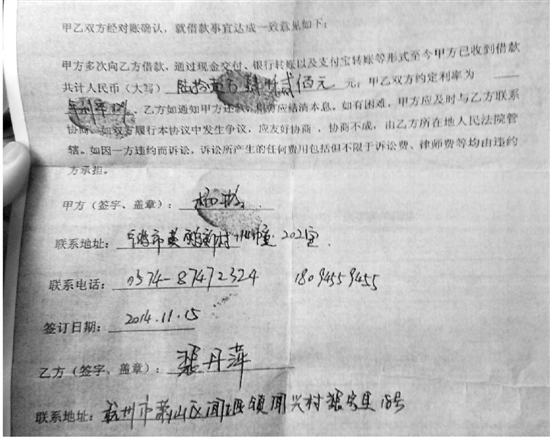 甲乙双方经对账确认,就借款事宜达成一致意见如下:
甲方多次向乙方借款,通过现金交付、银行转账以及支付宝转账等形式至今甲方已收到借款
共计人民币(大写) 陆拾 万 仟贰佰元 元;甲乙双方约定利率为
年利率 。乙方如通知甲方还款,甲方应结清本息。如有困难,甲方应及时与乙方联系
协商。如双方履行本协议中发生争议,应友好协商,协商不成,由乙方所在地人民法院管
辖。如因一方违约而诉讼,诉讼所产生的任何费用包括但不限于诉讼费、律师费等均由违约
方承担。
甲方(签字、盖章): 杨
联系地址: 市黄 新村 幢202室
联系电话: 0574-87472324 18094559455
签订日期: 2014.11.15
乙方(签字、盖章): 裴丹萍
联系地址: 杭州市萧山区闻堰镇闻兴村 18号